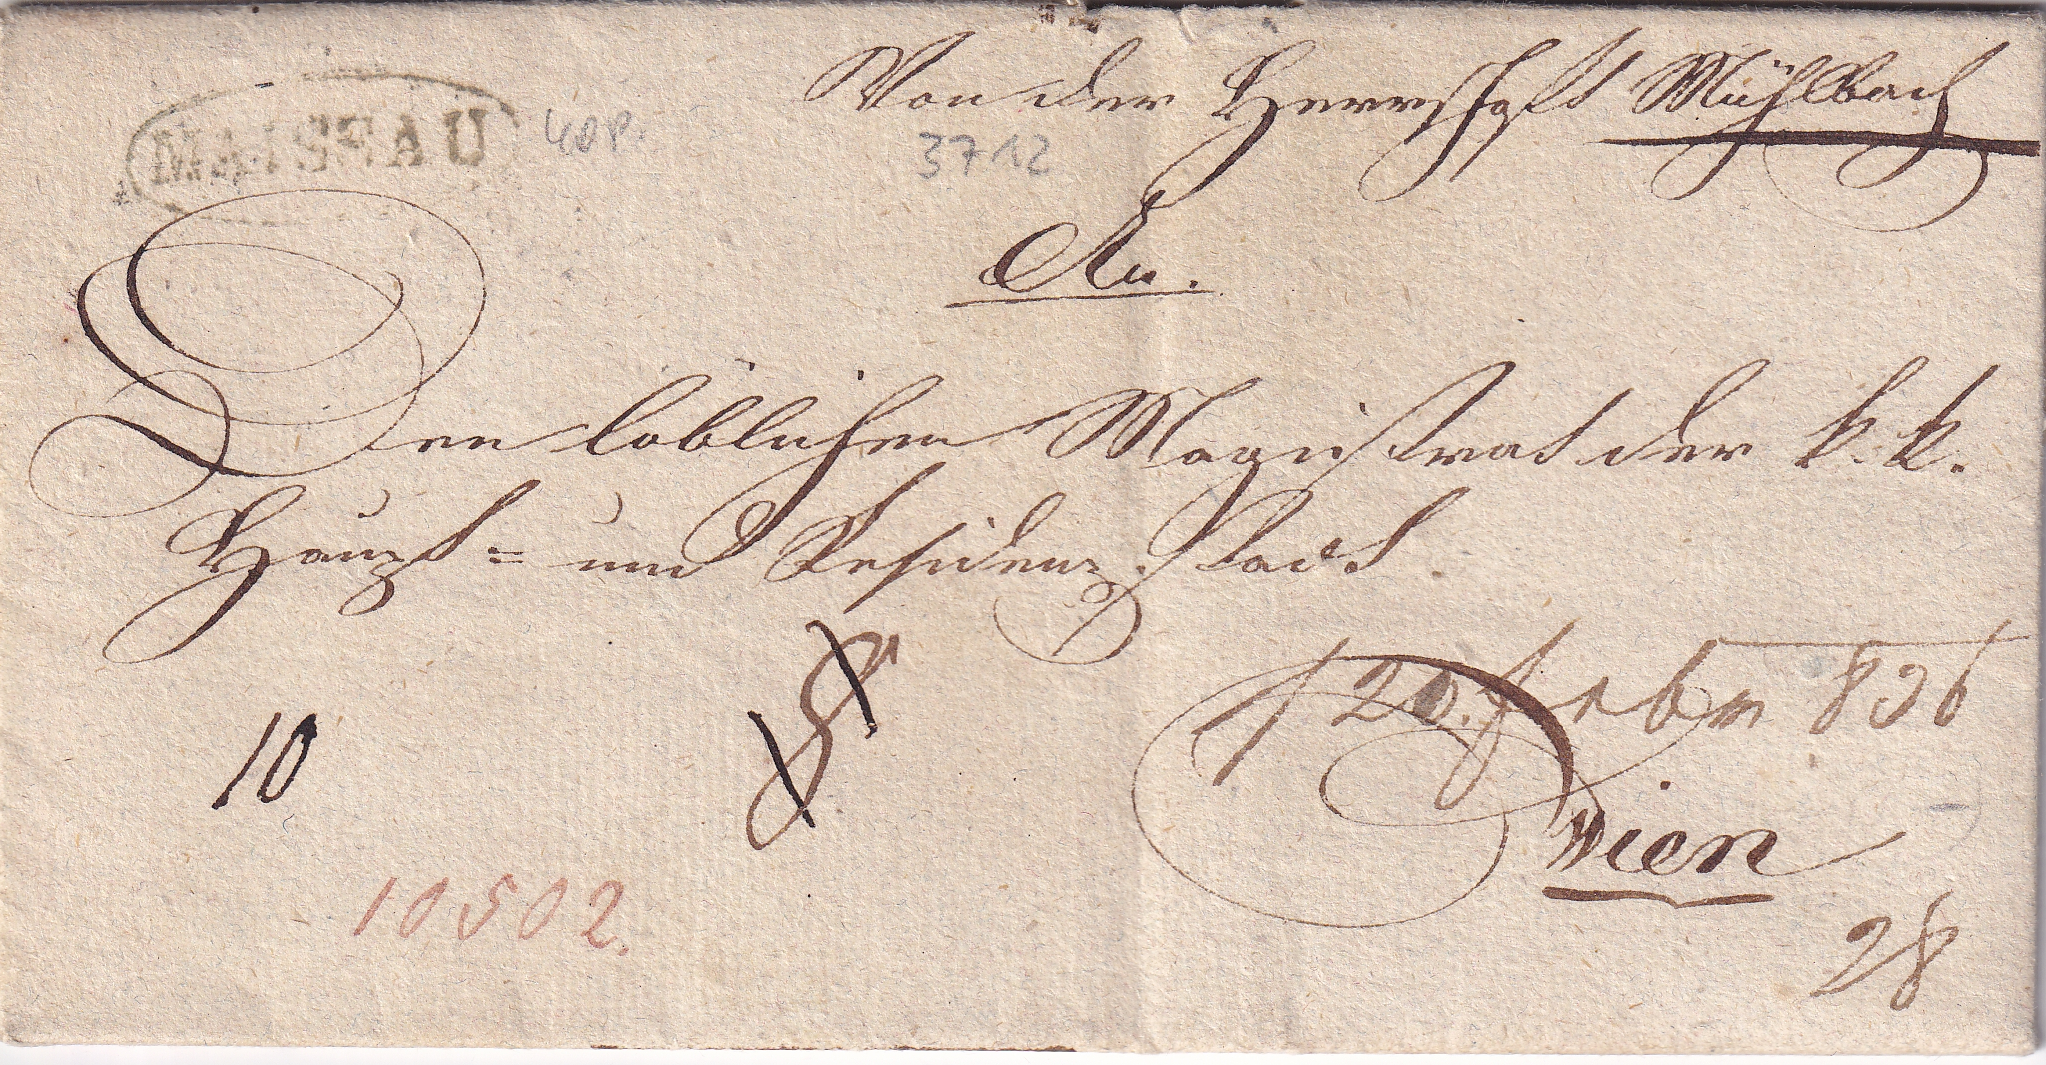 MAISSAU
40P.
Von der Herrschaft Mühlbach
3712
An.
Den löblichen Magistrat der k. k.
Haupt= und Residenzstadt
20. Febr 836
10
Wien
10502.
28